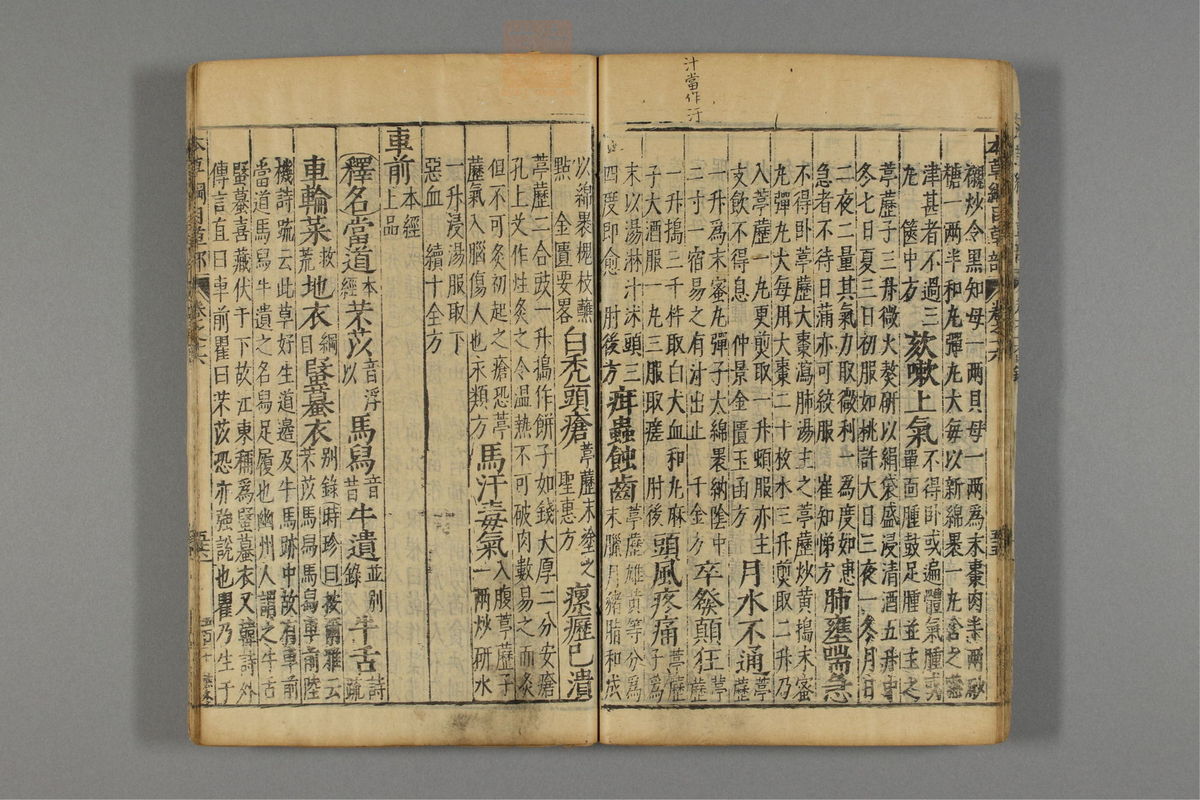 汁當作汗
本草綱目草部 卷之十六
襯炒令黑知母一兩貝母一兩爲末棗肉半兩砂
糖一兩半和丸彈丸大每以新綿裹一丸含之嚥
津甚者不過三丸 篋中方 欬嗽上氣 不得臥或遍體氣腫或單面腫鼓足腫並主之
葶藶子三升微火熬研以絹袋盛浸清酒五升中
冬七日夏三日初服如桃許大日三夜一冬月日
二夜二量其氣力取微利一爲度如患急者不待日滿亦可絞服 崔知悌方 肺壅喘急
不得臥葶藶大棗瀉肺湯主之葶藶炒黃搗末蜜
丸彈丸大每用大棗二十枚水三升煎取二升乃
入葶藶一丸更煎取一升頓服亦主支飲不得息 仲景金匱玉函方 月水不通 葶藶
一升爲末蜜丸彈子大綿裹納陰中二寸一宿易之有汁出止 千金方 卒發顛狂 葶藶
一升搗三千杵取白犬血和丸麻子大酒服一丸三服取瘥 肘後 頭風疼痛 葶藶子爲
末以湯淋汁沐頭三四度即愈 肘後方 疳蟲蝕齒 葶藶雄黃等分爲末臘月豬脂和成
以綿裹槐枝蘸點 金匱要畧 白禿頭瘡 葶藶末塗之 聖惠方 瘰癧已潰
葶藶二合豉一升搗作餅子如錢大厚二分安瘡
孔上艾作炷灸之令温熱不可破肉數易之而灸
但不可灸初起之瘡恐葶藶氣入腦傷人也永類方 馬汗毒氣 入腹葶藶子一兩炒研水
一升浸湯服取下
惡血 續十全方
車前 本經上品
釋名當道本經 芣苢音浮以 馬舄音昔 牛遺並別錄 牛舌詩疏
車輪菜救荒 地衣綱目 蝦蟇衣别錄 時珍曰按爾雅云芣苢馬舄馬舄車前陸
機詩疏云此草好生道邊及牛馬跡中故有車前
當道馬舄牛遺之名舄足履也幽州人謂之牛舌
蝦蟇喜藏伏于下故江東稱爲蝦蟇衣又韓詩外
傳言直曰車前瞿曰芣苢恐亦強說也瞿乃生于
本草綱目草部 卷之十六